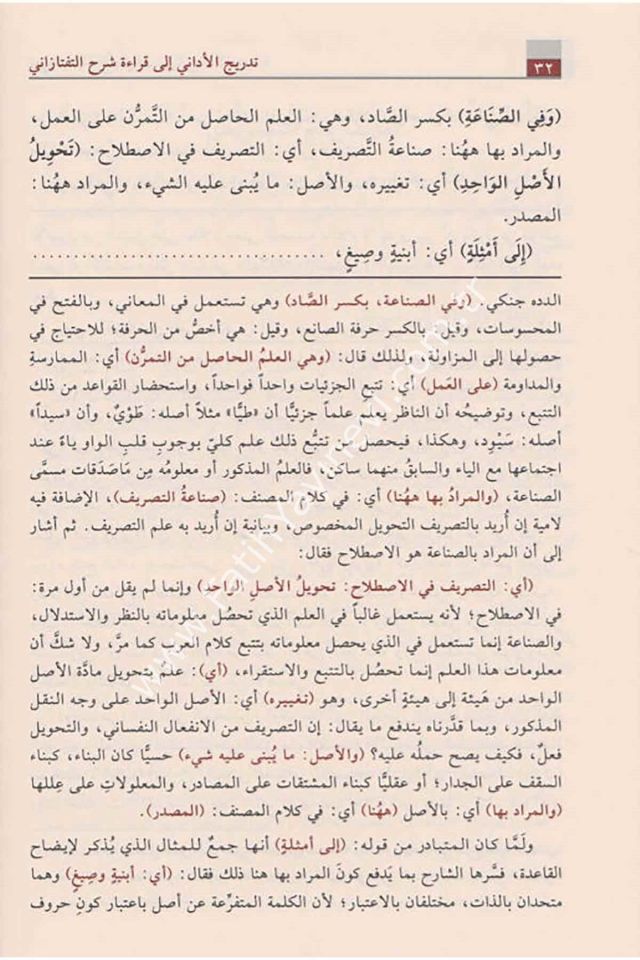 تدريج الأداني إلى قراءة شرح التفتازاني
٣٢
(وَفِي الصِّنَاعَةِ) بكسر الصَّاد، وهي: العلم الحاصل من التَّمرُّن على العمل،
والمراد بها ههُنا: صناعةُ التَّصريف، أي: التصريف في الاصطلاح: (تَحْوِيلُ
الأَصْلِ الوَاحِدِ) أي: تغييره، والأصل: ما يُبنى عليه الشيء، والمراد ههُنا:
المصدر.
(إِلَى أَمْثِلَةٍ) أي: أبنيةٍ وصِيغٍ، ....................................
الدده جنكي. (وفي الصناعة، بكسر الصَّاد) وهي تستعمل في المعاني، وبالفتح في
المحسوسات، وقيل: بالكسر حرفة الصانع، وقيل: هي أخصُّ من الحرفة؛ للاحتياج في
حصولها إلى المزاولة، ولذلك قال: (وهي العلمُ الحاصل من التمرُّن) أي: الممارسةِ
والمداومة (على العَمل) أي: تتبعِ الجزئيات واحداً فواحداً، واستحضار القواعد من ذلك
التتبع، وتوضيحُه أن الناظر يعلم علماً جزئيًّا أن «طيًّا» مثلاً أصله: طَوْيٌ، وأن «سيداً»
أصله: سَيْوِد، وهكذا، فيحصل من تتبُّع ذلك علم كليّ بوجوبِ قلبِ الواو ياءً عند
اجتماعها مع الياء والسابقُ منهما ساكن، فالعلمُ المذكور أو معلومُه مِن مَاصَدَقات مسمَّى
الصناعة، (والمرادُ بها ههُنا) أي: في كلام المصنف: (صناعةُ التصريف)، الإضافة فيه
لامية إن أُريد بالتصريف التحويل المخصوص، وبيانية إن أُريد به علم التصريف. ثم أشار
إلى أن المراد بالصناعة هو الاصطلاح فقال:
(أي: التصريف في الاصطلاح: تحويلُ الأصل الواحد) وإنما لم يقل من أول مرة:
في الاصطلاح؛ لأنه يستعمل غالباً في العلم الذي تحصُل معلوماته بالنظر والاستدلال،
والصناعة إنما تستعمل في الذي يحصل معلوماته بتتبع كلام العرب كما مرَّ، ولا شكَّ أن
معلومات هذا العلم إنما تحصُل بالتتبع والاستقراء، (أي): علم بتحويل مادَّة الأصل
الواحد من هَيئة إلى هيئةٍ أخرى، وهو (تغييره) أي: الأصل الواحد على وجه النقل
المذكور، وبما قدَّرناه يندفع ما يقال: إن التصريف من الانفعال النفساني، والتحويل
فعلٌ، فكيف يصح حملُه عليه؟ (والأصل: ما يُبنى عليه شيء) حسيًّا كان البناء، كبناء
السقف على الجدار؛ أو عقليًّا كبناء المشتقات على المصادر، والمعلولات على عِللها
(والمراد بها) أي: بالأصل (ههُنا) أي: في كلام المصنف: (المصدر).
ولَمَّا كان المتبادر من قوله: (إلى أمثلة) أنها جمعٌ للمثال الذي يُذكر لإيضاح
القاعدة، فسَّرها الشارح بما يَدفع كونَ المراد بها هنا ذلك فقال: (أي: أبنية وصِيغٍ) وهما
متحدان بالذات، مختلفان بالاعتبار؛ لأن الكلمة المتفرِّعة عن أصل باعتبار كونِ حروف
www.fatihyayinevi.com.tr